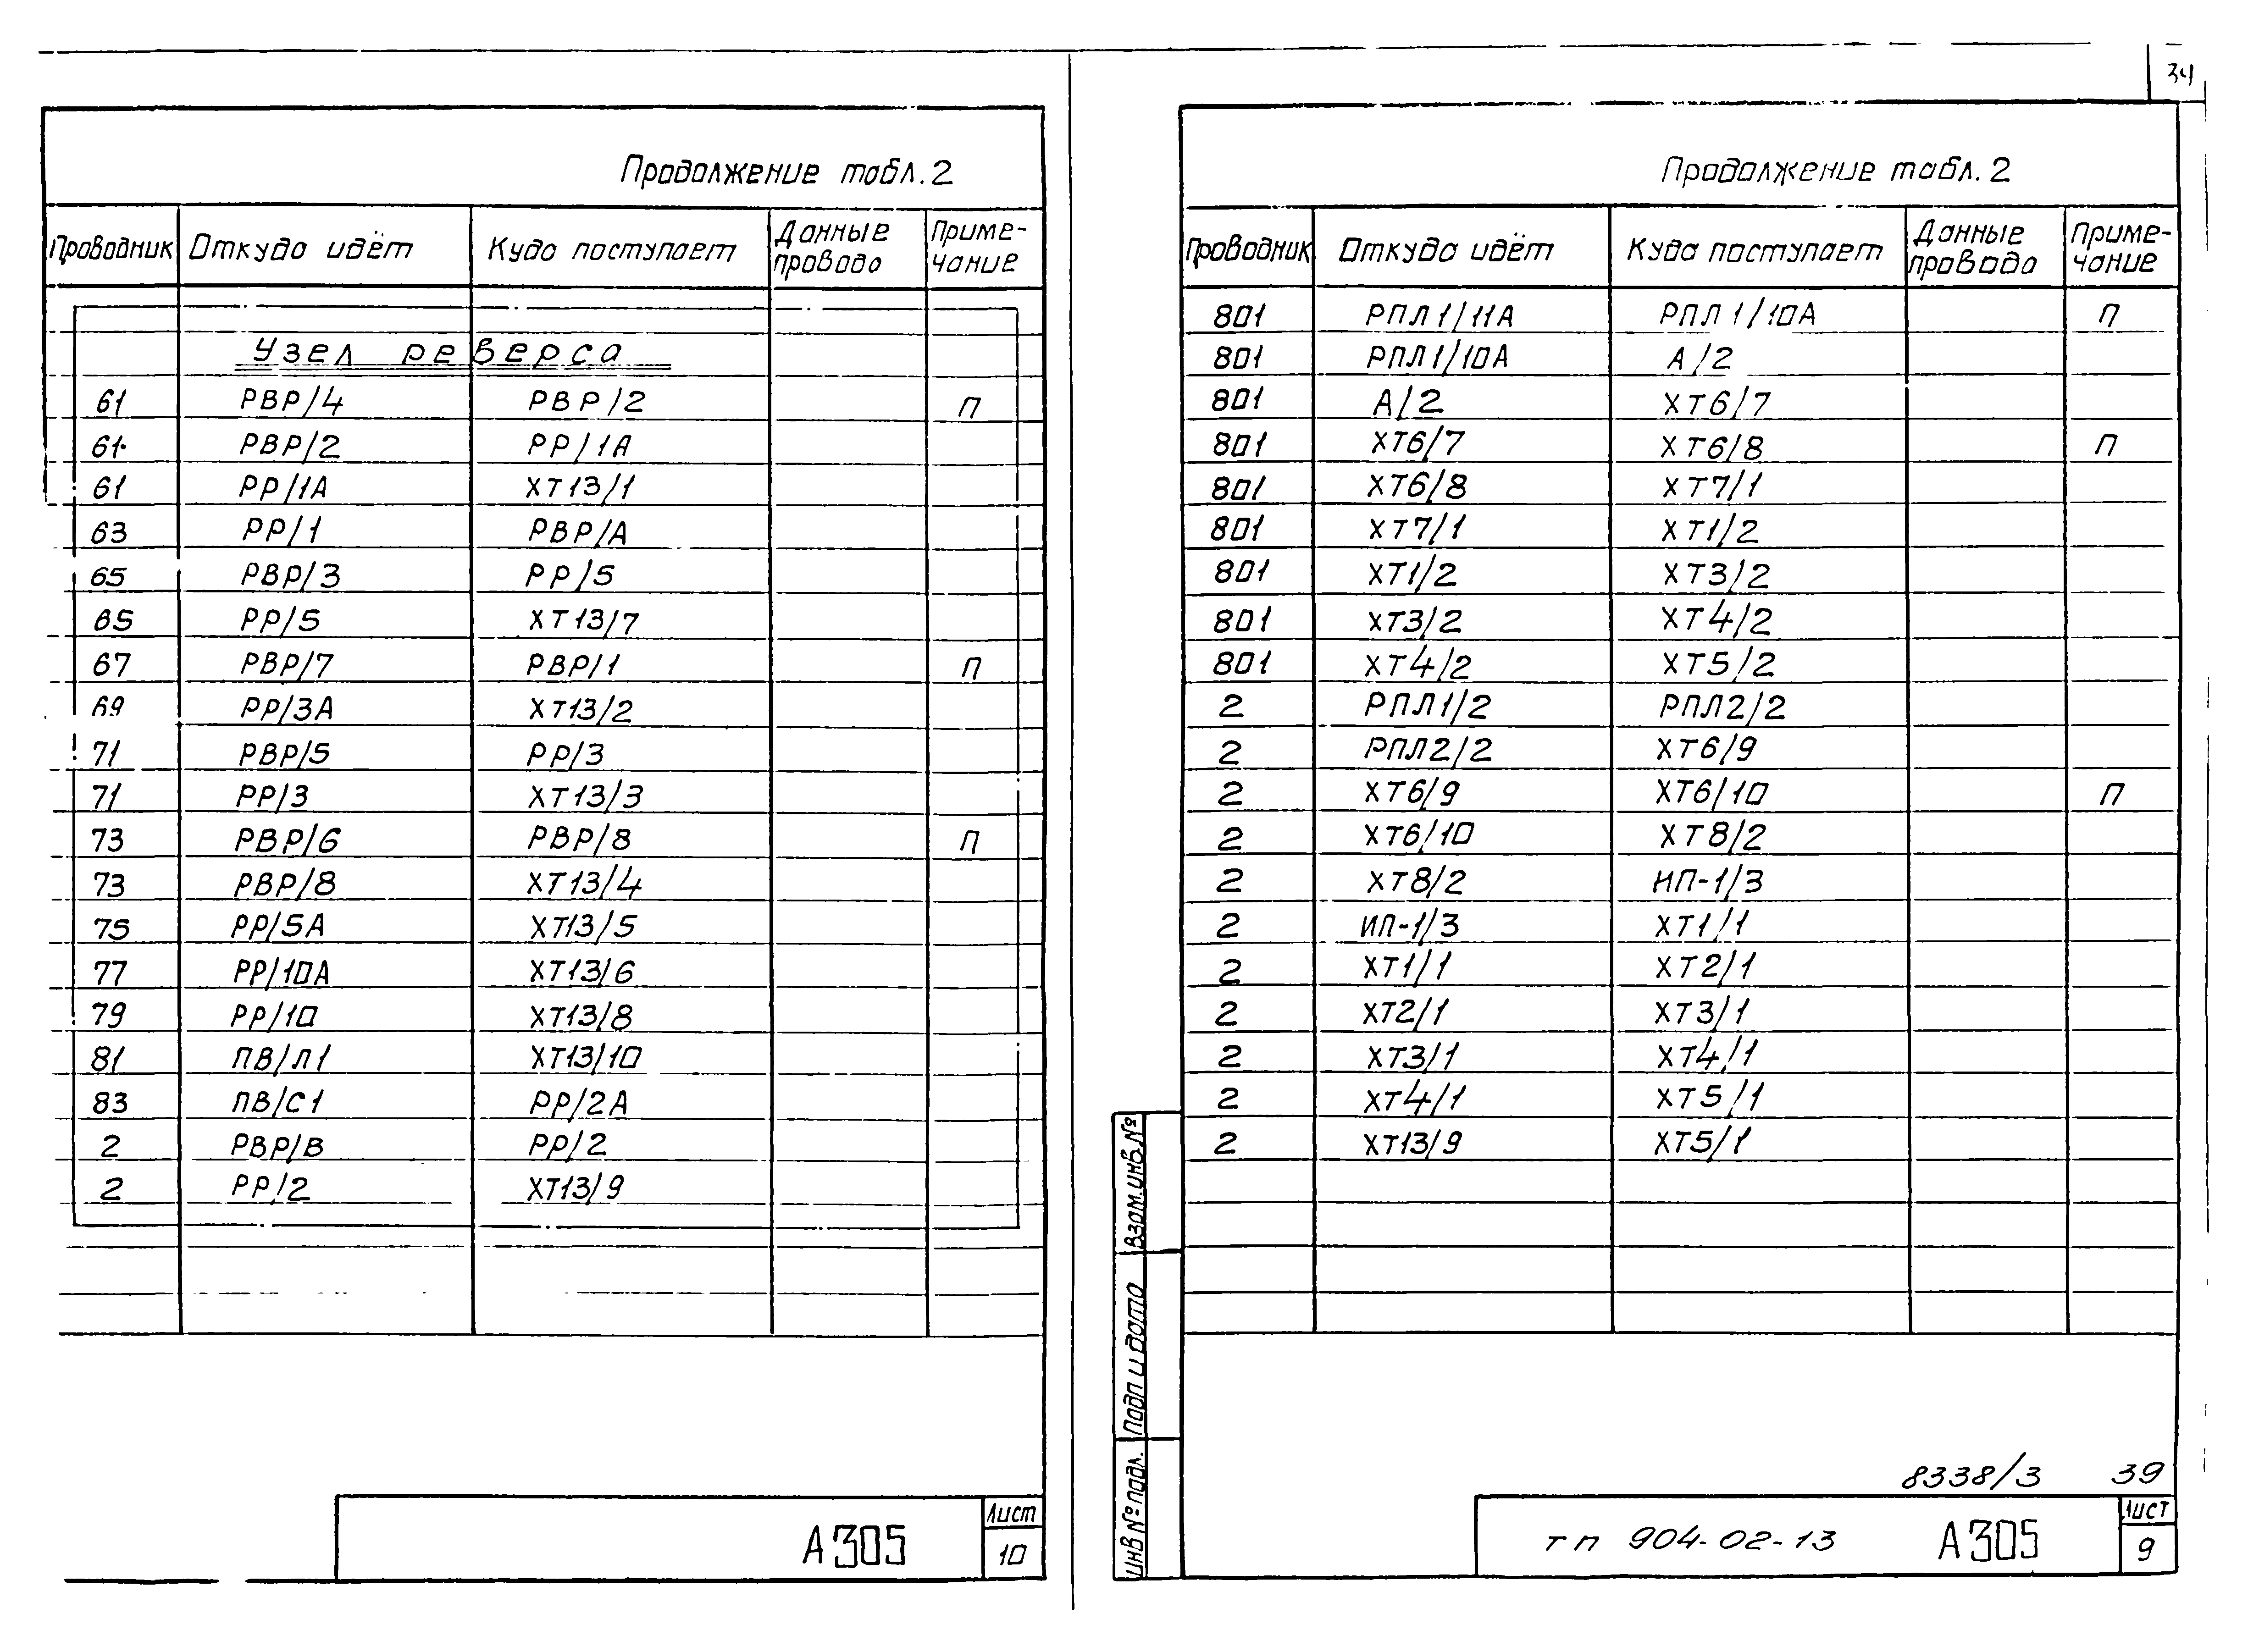 34
Продолжение табл. 2
Проводник Откуда идёт Куда поступает Данные провода Приме-чание
Узел реверса
61 РВР/4 РВР/2 П
61 РВР/2 РР/1А
61 РР/1А ХТ13/1
63 РР/1 РВР/А
65 РВР/3 РР/5
65 РР/5 ХТ13/7
67 РВР/7 РВР/1 П
69 РР/3А ХТ13/2
71 РВР/5 РР/3
71 РР/3 ХТ13/3
73 РВР/6 РВР/8 П
73 РВР/8 ХТ13/4
75 РР/5А ХТ13/5
77 РР/10А ХТ13/6
79 РР/10 ХТ13/8
81 ПВ/Л1 ХТ13/10
83 ПВ/С1 РР/2А
2 РВР/В РР/2
2 РР/2 ХТ13/9
А305
Лист
10
Продолжение табл. 2
Проводник Откуда идёт Куда поступает Данные провода Приме-чание
801 РПЛ1/11А РПЛ1/10А П
801 РПЛ1/10А А/2
801 А/2 ХТ6/7
801 ХТ6/7 ХТ6/8 П
801 ХТ6/8 ХТ7/1
801 ХТ7/1 ХТ1/2
801 ХТ1/2 ХТ3/2
801 ХТ3/2 ХТ4/2
801 ХТ4/2 ХТ5/2
2 РПЛ1/2 РПЛ2/2
2 РПЛ2/2 ХТ6/9
2 ХТ6/9 ХТ6/10 П
2 ХТ6/10 ХТ8/2
2 ХТ8/2 ИП-1/3
2 ИП-1/3 ХТ1/1
2 ХТ1/1 ХТ2/1
2 ХТ2/1 ХТ3/1
2 ХТ3/1 ХТ4/1
2 ХТ4/1 ХТ5/1
2 ХТ13/9 ХТ5/1
Взам.инв.№
Подп и дата
Инв № подл.
8338/3 39
тп 904-02-13 А305
Лист
9